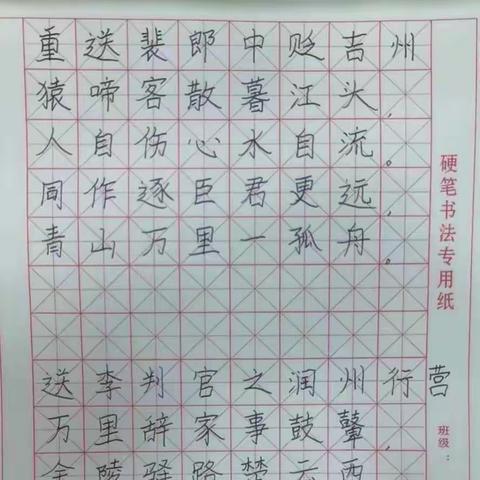 重送裴郎中贬吉州
猿啼客散暮江头,
人自伤心水自流。
同作逐臣君更远,
青山万里一孤舟。
送李判官之润州行营
万里辞家事鼓鼙,
金陵驿路楚云西
硬笔书法专用纸
班级：